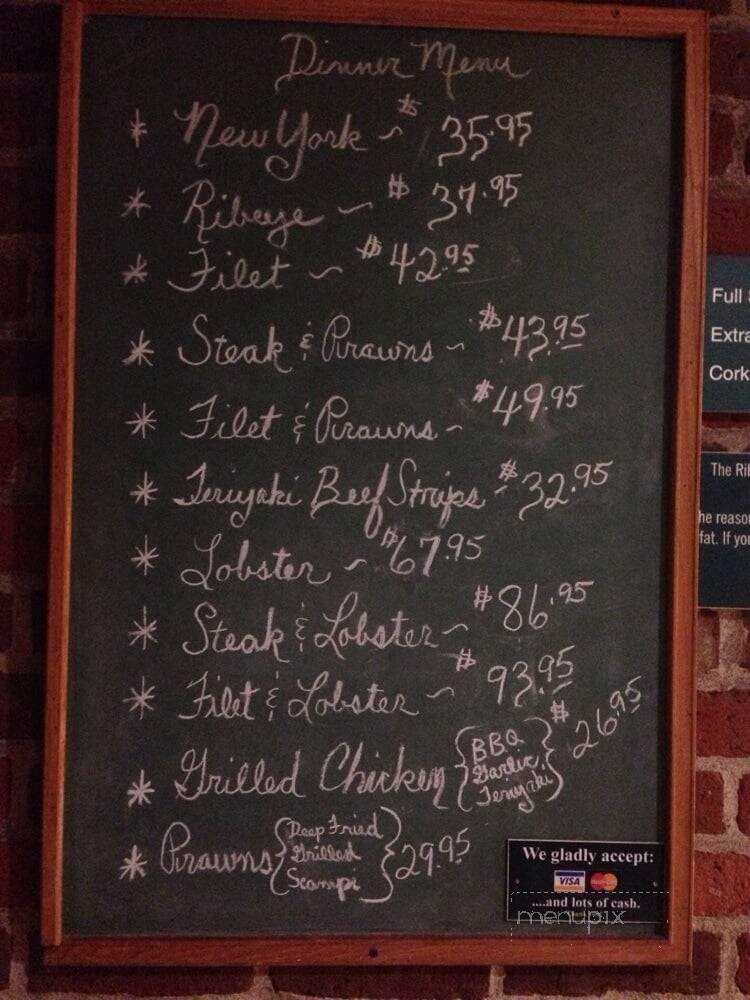 Dinner Menu
* New York ~ $35.95
* Ribeye ~ $37.95
* Filet ~ $42.95
* Steak & Prawns ~ $43.95
* Filet & Prawns ~ $49.95
* Teriyaki Beef Strips ~ $32.95
* Lobster ~ $67.95
* Steak & Lobster ~ $86.95
* Filet & Lobster ~ $93.95
* Grilled Chicken { BBQ Garlic, Teriyaki } $26.95
* Prawns { Deep Fried Grilled Scampi } 29.95
We gladly accept:
VISA MasterCard
....and lots of cash.
menupix
Full
Extra
Cork
The Rib
he reaso
fat. If you